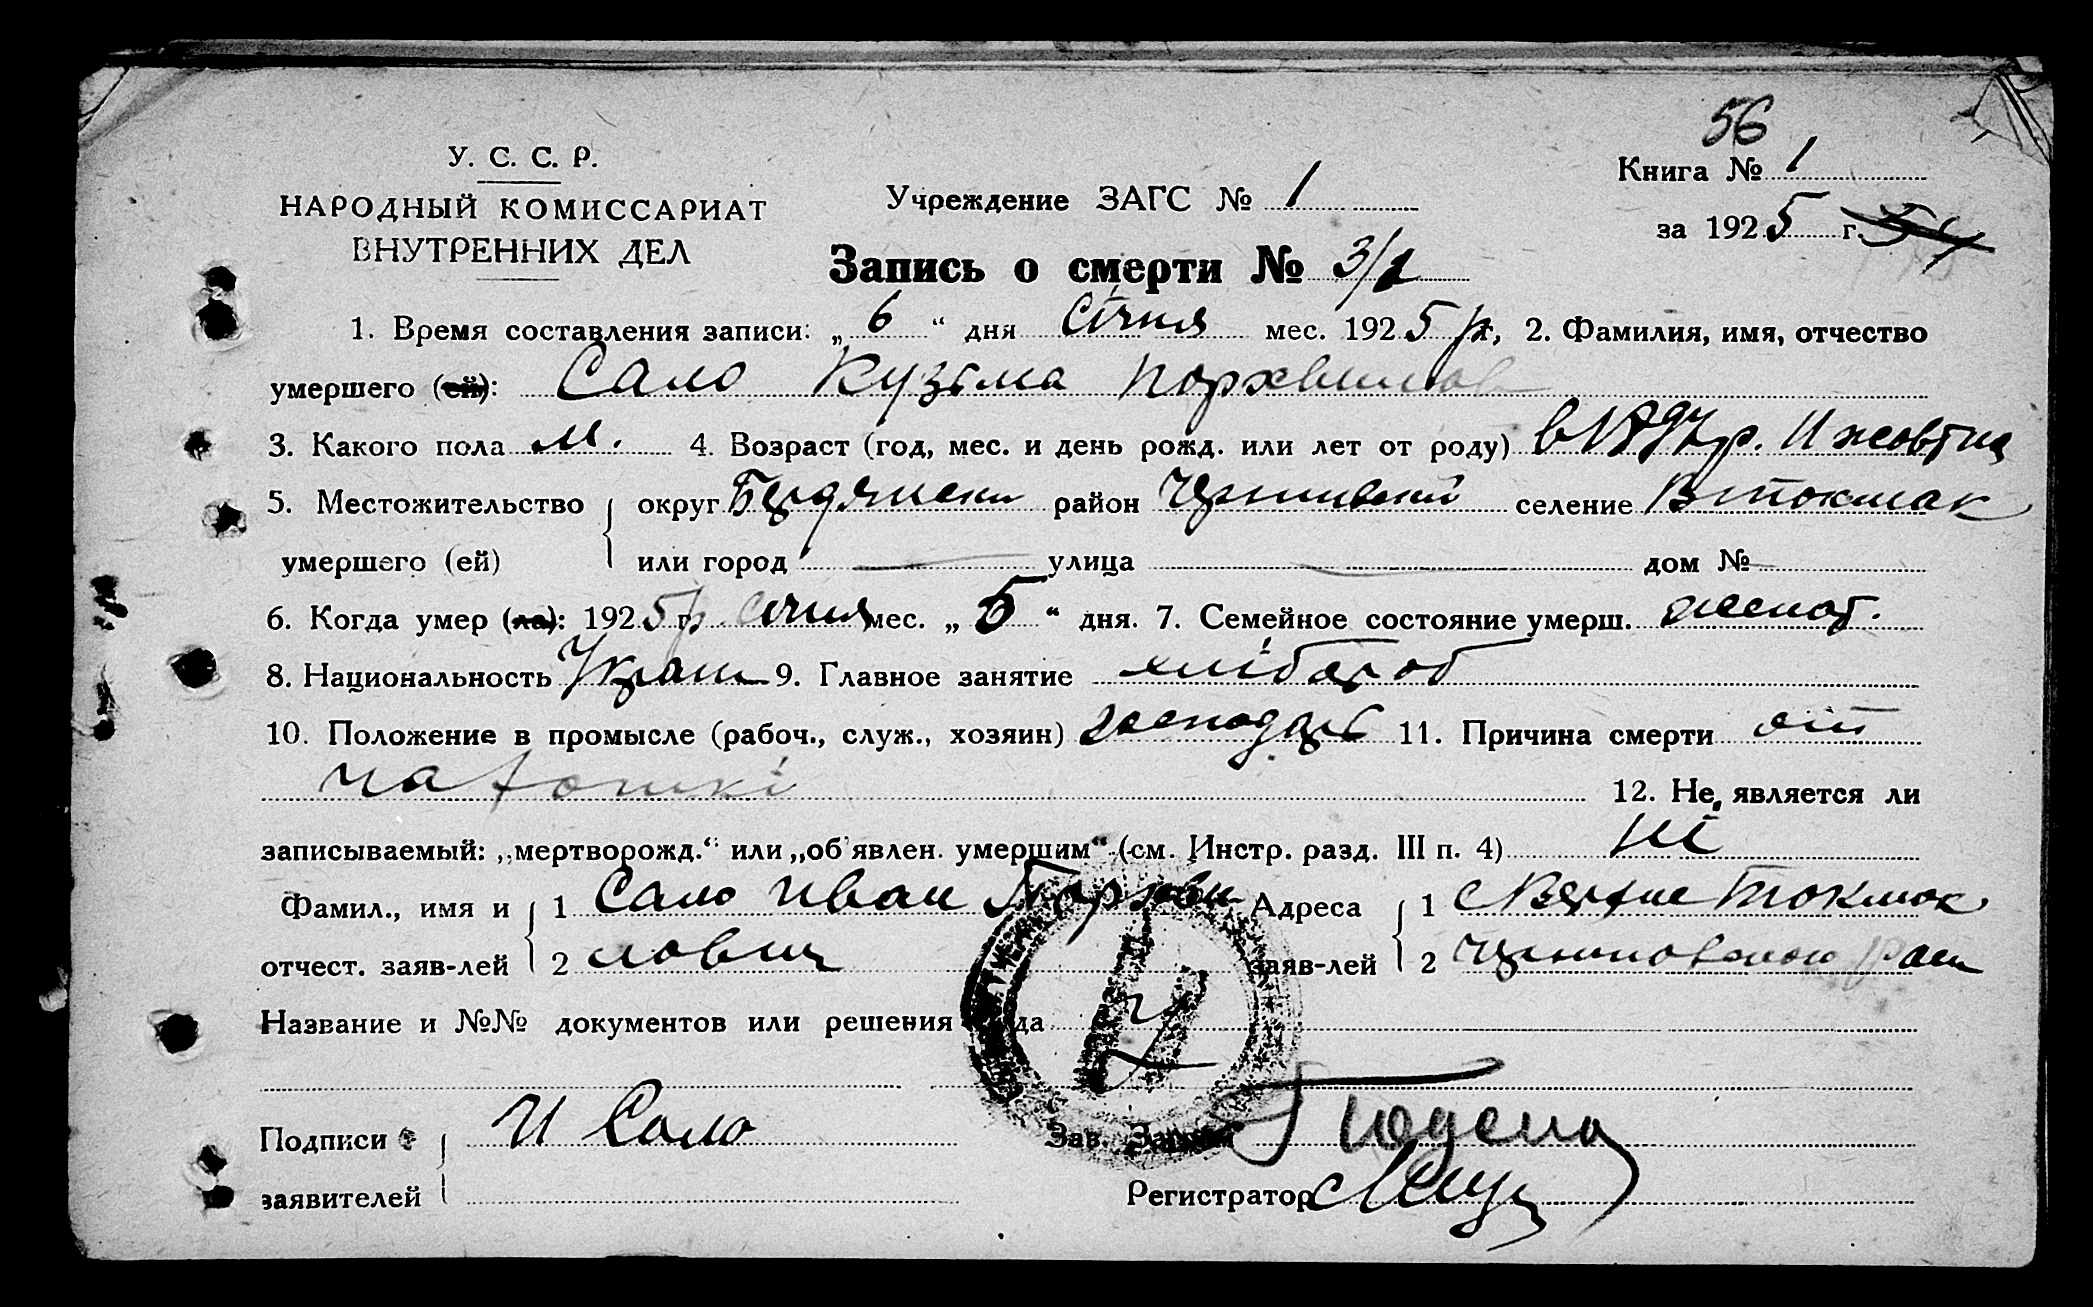 56
У. С. С. Р.
НАРОДНЫЙ КОМИССАРИАТ
ВНУТРЕННИХ ДЕЛ
Учреждение ЗАГС № 1
Книга № 1
за 1925 г. 54
Запись о смерти № 3/1
1. Время составления записи: „6“ дня Січня мес. 1925 р, 2. Фамилия, имя, отчество
умершего (ей): Сало Кузьма
3. Какого пола м. 4. Возраст (год, мес. и день рожд. или лет от роду) в р. 11 жовтня
5. Местожительство округ район селение Втокмак
умершего (ей) или город — улица — дом №
6. Когда умер (ла): 1925 г. р. січня мес. „5“ дня. 7. Семейное состояние умерш. женат.
8. Национальность Украин 9. Главное занятие хлібороб
10. Положение в промысле (рабоч., служ., хозяин) господарь 11. Причина смерти от
чахотки 12. Не является ли
записываемый: „мертворожд.“ или „об'явлен. умершим“ (см. Инстр. разд. III п. 4) Ні
Фамил., имя и 1 Сало Иван Адреса 1 с Верхне Токмак
отчест. заяв-лей 2 лович заяв-лей 2
Название и №№ документов или решения суда
Подписи И Сало Зав. Загсом
заявителей Регистратор